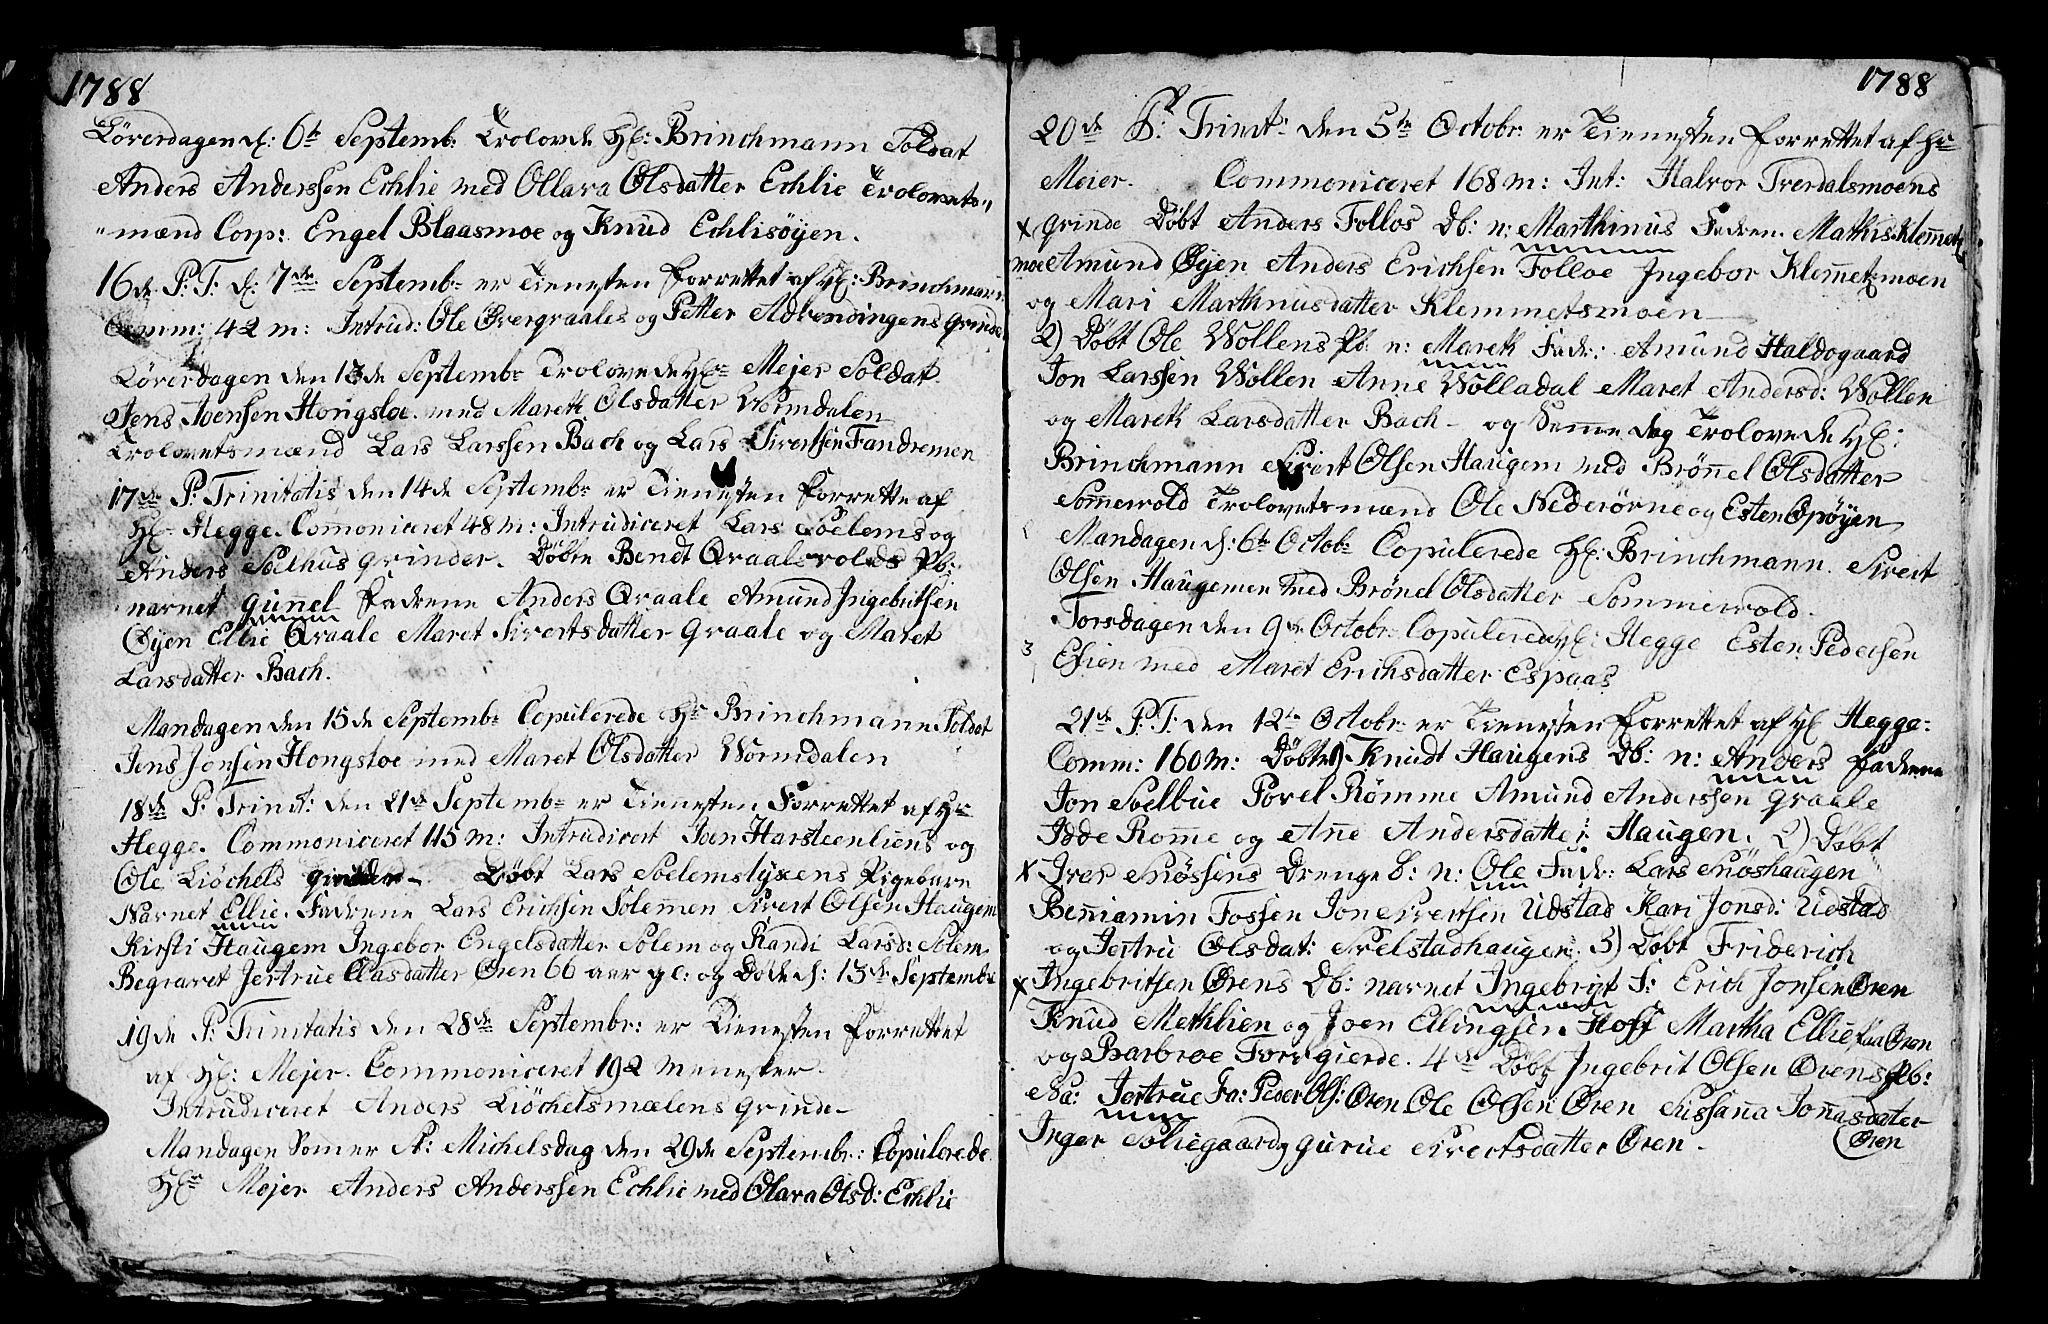 1788
Löverdagen d: 6te Septemb: Trolovde Hr: Brinchmann Soldat
Anders Anderssen Echlie med Ollara Olsdatter Echlie Trolovets-
-mænd Corp: Engel Blaasmoe og Knud Echlisöyen.
16de P: T: d: 7de Septembr er Tienesten Forrettet af Hr: Brinchman
Comm: 42 m: Introd: Ole Övergraales og Petter Grinde
Löverdagen den 13de Septembr Trolovede Hr Mejer Soldat
Jens Joensen Hongsloe med Mareth Olsdatter Wormdalen
Trolovetsmænd Lars Larssen Bach og Lars Sivertsen Fandremen
17de P: Trinitatis den 14de Septembr er Tienesten Forrette af
Hr Hegge. Comoniceret 48 m: Intrudiceret Lars Soelems og
Anders Soelhus grinder. Döbte Bendt Qraalsvolds Pb:
navnet Gunnel Fadrene Anders Qraale Amund Ingebritsen
Öyen Ellie Qraale Maret Sivertsdatter Graale og Maret
Larsdatter Bach.
Mandagen den 15de Septembr Copulerede Hr Brinchmann Soldat
Jens Jonsen Hongsloe med Maret Olsdatter Wormdalen
18de P: Trinit: den 21de Septembr er Tienesten Forrettet af Hr
Hegge. Commoniceret 115 m: Intrudicert Joen Harsteenliens og
Ole Liöchels grinder - Döbt Lars Soelemslyxens Pigebarn
Navnet Ellie. Fadrene Lars Erichsen Solemen Sivert Olsen Haugem
Kirsti Haugem Ingebor Engelsdatter Solem og Randi Larsd: Solem
Begravet Jertrue Claasdatter Ören 66 aar gl: og Döde d: 13de Septembr
19de P: Trinitatis den 28de Septembr: er Tienesten Forrettet
af Hr: Mejer. Commoniceret 192 Menester.
Intrudiceret Anders Liöchelsmælens grinde -
Mandagen Som er St: Michelsdag den 29de Septembr: Copulerede
Hr Mejer Anders Anderssen Echlie med Olara Olsd: Echlie
1788
20de P: Trinit: den 5te Octobr: er Tienesten Forrettet af Hr
Meier. Commoniceret 168 m: Int: Halvor Trerdalsmoens
x grinde Döbt Anders Follos Db: n: Marthinus Fadren. Mathis Klemmetz
moe Amund Öyen Anders Erichsen Folloe Ingebor Klemetzmoen
og Mari Marthinusdatter Klemmetsmoen
2) Döbt Ole Wollens Pb. n: Mareth Fadr: Amund Haldogaard
Jon Larssen Wollen Anne Wolladal Maret Andersd: Wollen
og Mareth Larsdatter Bach - og Samme dag Trolovede Hr:
Brinchmann Sivert Olsen Haugem med Brönnel Olsdatter
Sommervold Trolovetsmænd Ole Nederörne og Esten Opöyen
Mandagen d: 6te Octobr Copulerede Hr: Brinchmann. Sivert
Olsen Haugemen med Brönel Olsdatter Sommervold.
Torsdagen den 9de Octobr: Copulerede Hr: Hegge Esten Pedersen
3 Efien med Maret Erichsdatter Espaas
21de P: T: den 12te Octobr: er Tienesten Forrettet af Hr Hegge:
Comm: 160 m: Döbte 1) Knudt Haugens Db: n: Anders Fadrene
Jon Soelbue Povel Römme Amund Anderssen Graale
Idde Romme og Ane Andersdatter Haugen. 2) Döbt
x Iver Snössens Drenge B: n: Ole Fadr: Lars Snöshaugen
Benniamin Fossen Jon Sivertsen Udstad Kari Jonsd: Udstad
og Jertru Olsdat: Svelstadhaugen. 3) Döbt Friderich
x Ingebritsen Örens Db: navnet Ingebrigt F: Erich Jonsen Ören
Knud Methlien og Joen Ellingsen Hoff Martha Ellie paa Ören
og Barbroe Torvgierde. 4de Döbt Ingebrit Olsen Örens Pb:
Na: Jertrue Fa: Peder Ols: Ören Ole Olsen Ören Sussanna Jonasdater
Inger Soliegaard og Gurue Sivertsdatter Ören. Ören